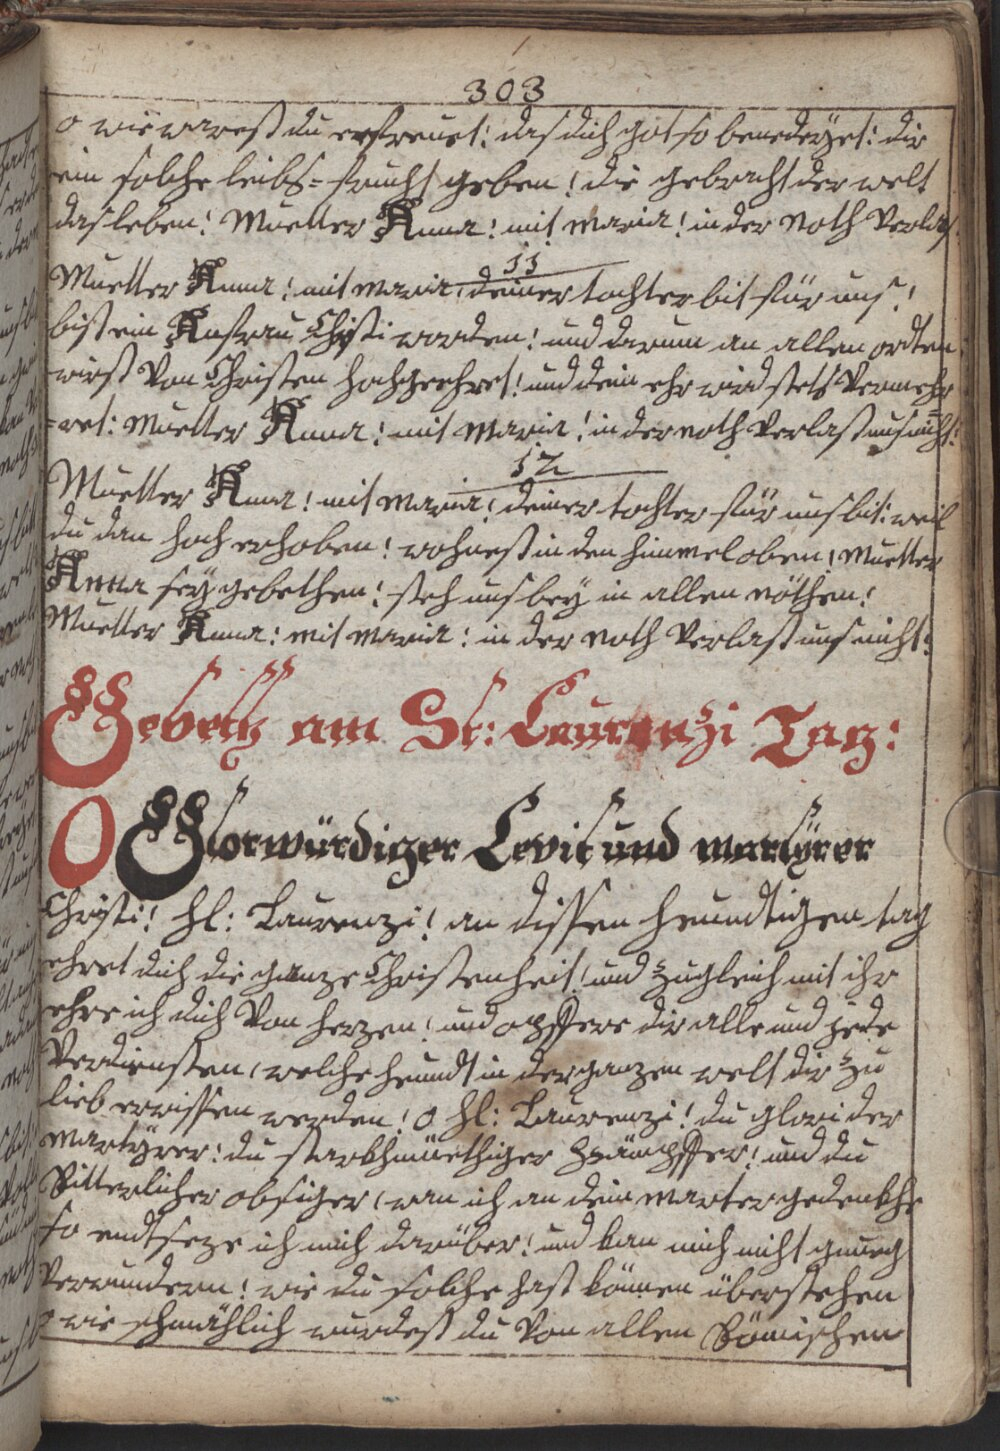 303
o wie warest du erfreuet: das dich got so benedeÿet: dir
ein solche leibs= frucht geben! die gebracht der welt
das leben! Muetter Anna! mit Maria! in der noth verlas
11
Muetter Anna! mit Maria! deiner tochter bit für uns!
bist ein Anfrau Christi worden! und darum an allen ordten
wirst von Christen hochgeehret! und dein ehr wird stets vermeh
=ret: Muetter Anna! mit Maria! in der noth verlast uns nicht!
12
Muetter Anna! mit Maria! deiner tochter für uns bit: weil
du dan hoch erhoben! wohnest in den himmel oben! Muetter
Anna seÿ gebethen! steh uns beÿ in allen nöthen!
Muetter Anna: mit Maria: in der noth verlast uns nicht:
Gebett am St: Laurenzi Tag:
O Glorwürdiger Levit und martÿrer
Christi! hl: Laurenzi! an dissen heundtigen tag
ehret dich die ganze Christenheit! und zugleich mit ihr
ehre ich dich von herzen! und opffere dir alle und jede
verdiensten, welche heundt in der ganzen welt dir zu
lieb erwissen werden! O hl: Laurenzi! du glori der
martÿrer! du starkhmüethiger Kämpffer! und du
Ritterlicher obsiger, wan ich an dein marter gedenkhe
so endtseze ich mich darüber! und kan mich nicht genueg
verwundern! wie du solche hast können überstehen
o wie schmählich wurdest du von allen Römischen